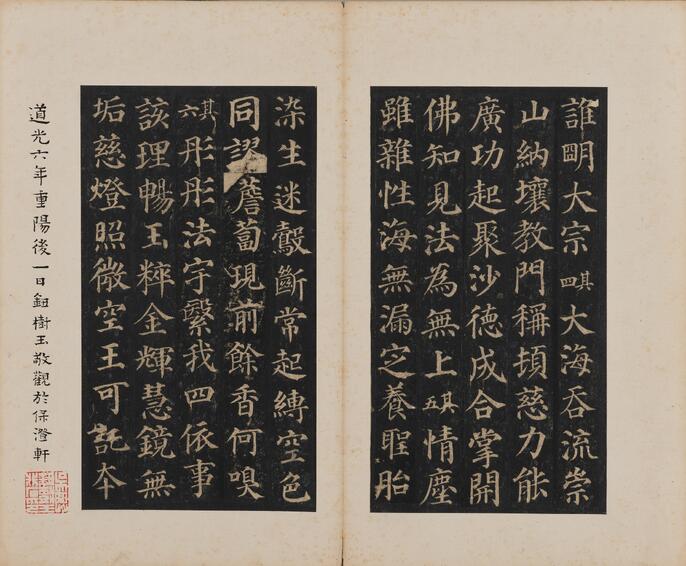 誰朙大宗其四大海吞流崇
山納壤教門稱頓慈力能
廣功起聚沙德成合掌開
佛知見法為無上其五情塵
雖雜性海無漏定養聖胎
染生迷鷇斷常起縛空色
同謬薝蔔現前餘香何嗅
其六彤彤法宇繄我四依事
該理暢玉粹金輝慧鏡無
垢慈燈照微空王可託本
道光六年重陽後一日鈕樹玉敬觀於保澄軒